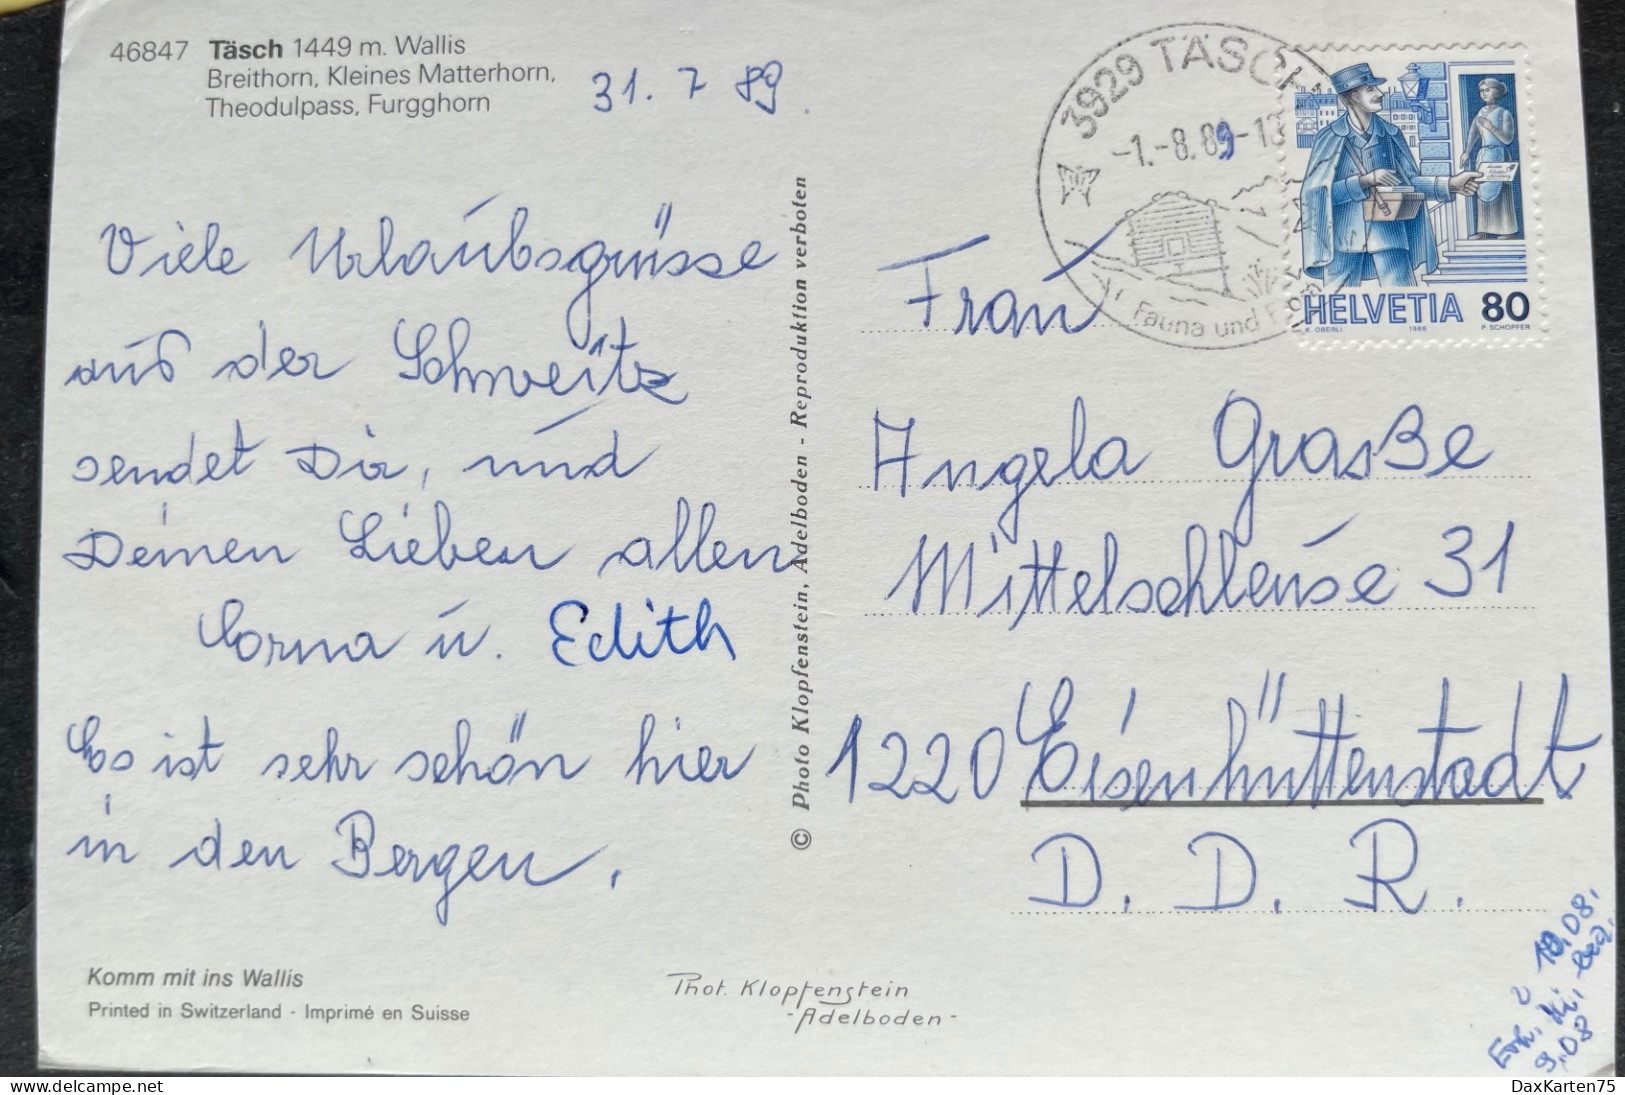 46847 Täsch 1449 m. Wallis
Breithorn, Kleines Matterhorn,
Theodulpass, Furgghorn
31. 7 89
Viele Urlaubsgrüsse
aus der Schweitz
sendet Dir, und
Deinen Lieben allen
Corna u. Edith
Es ist sehr schön hier
in den Bergen.
Komm mit ins Wallis
Printed in Switzerland - Imprimé en Suisse
Phot. Klopfenstein
- Adelboden -
© Photo Klopfenstein, Adelboden - Reproduktion verboten
3929 TÄSCH
-1.-8.89-18
Fauna und Flora
HELVETIA 80
K. OBERLI 1986 P. SCHOPFER
Frau
Angela Graße
Mittelschleuse 31
1220 Eisenhüttenstadt
D. D. R.
10.08.
Erh.
9.08
DaxKarten75